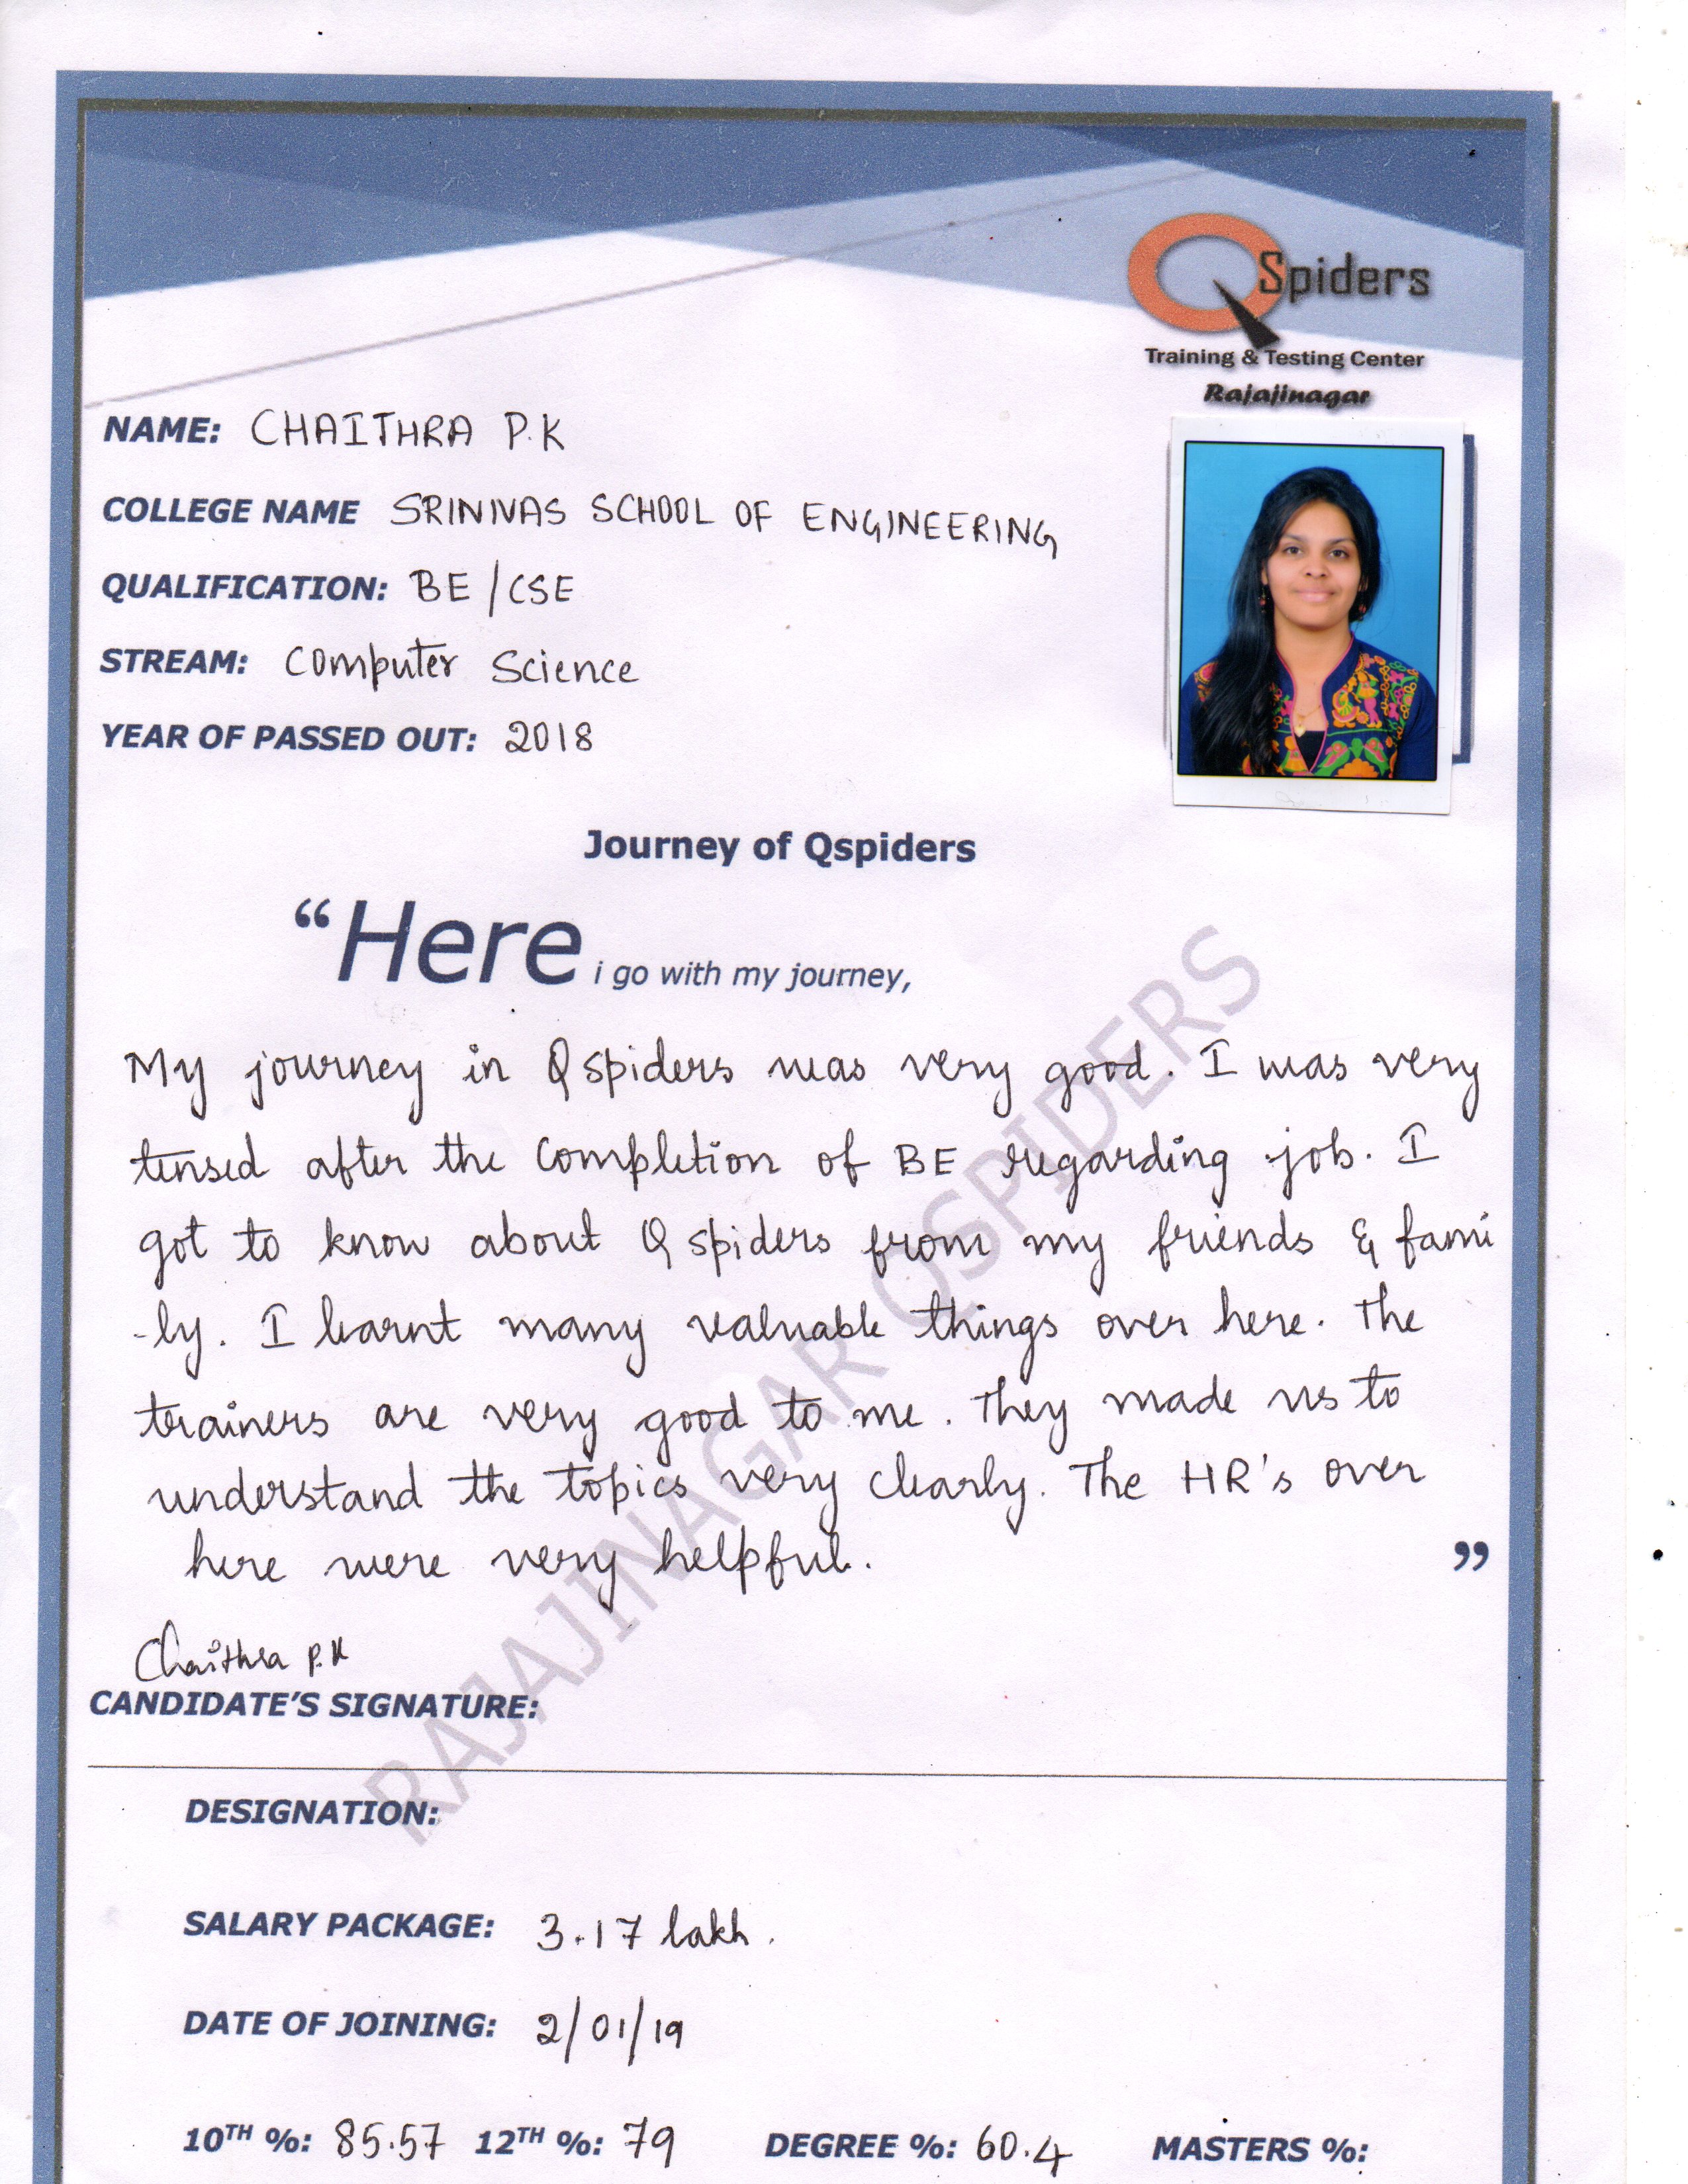 QSpiders
Training & Testing Center
Rajajinagar
NAME: CHAITHRA P.K
COLLEGE NAME SRINIVAS SCHOOL OF ENGINEERING
QUALIFICATION: BE / CSE
STREAM: Computer Science
YEAR OF PASSED OUT: 2018
Journey of Qspiders
“Here i go with my journey,
My journey in Qspiders was very good. I was very
tensed after the completion of BE regarding job. I
got to know about Qspiders from my friends & fami
-ly. I learnt many valuable things over here. The
trainers are very good to me. They made us to
understand the topics very clearly. The HR's over
here were very helpful.
”
Chaithra P.K
CANDIDATE’S SIGNATURE:
RAJAJINAGAR QSPIDERS
DESIGNATION:
SALARY PACKAGE: 3.17 lakh.
DATE OF JOINING: 2/01/19
10TH %: 85.57 12TH %: 79 DEGREE %: 60.4 MASTERS %: